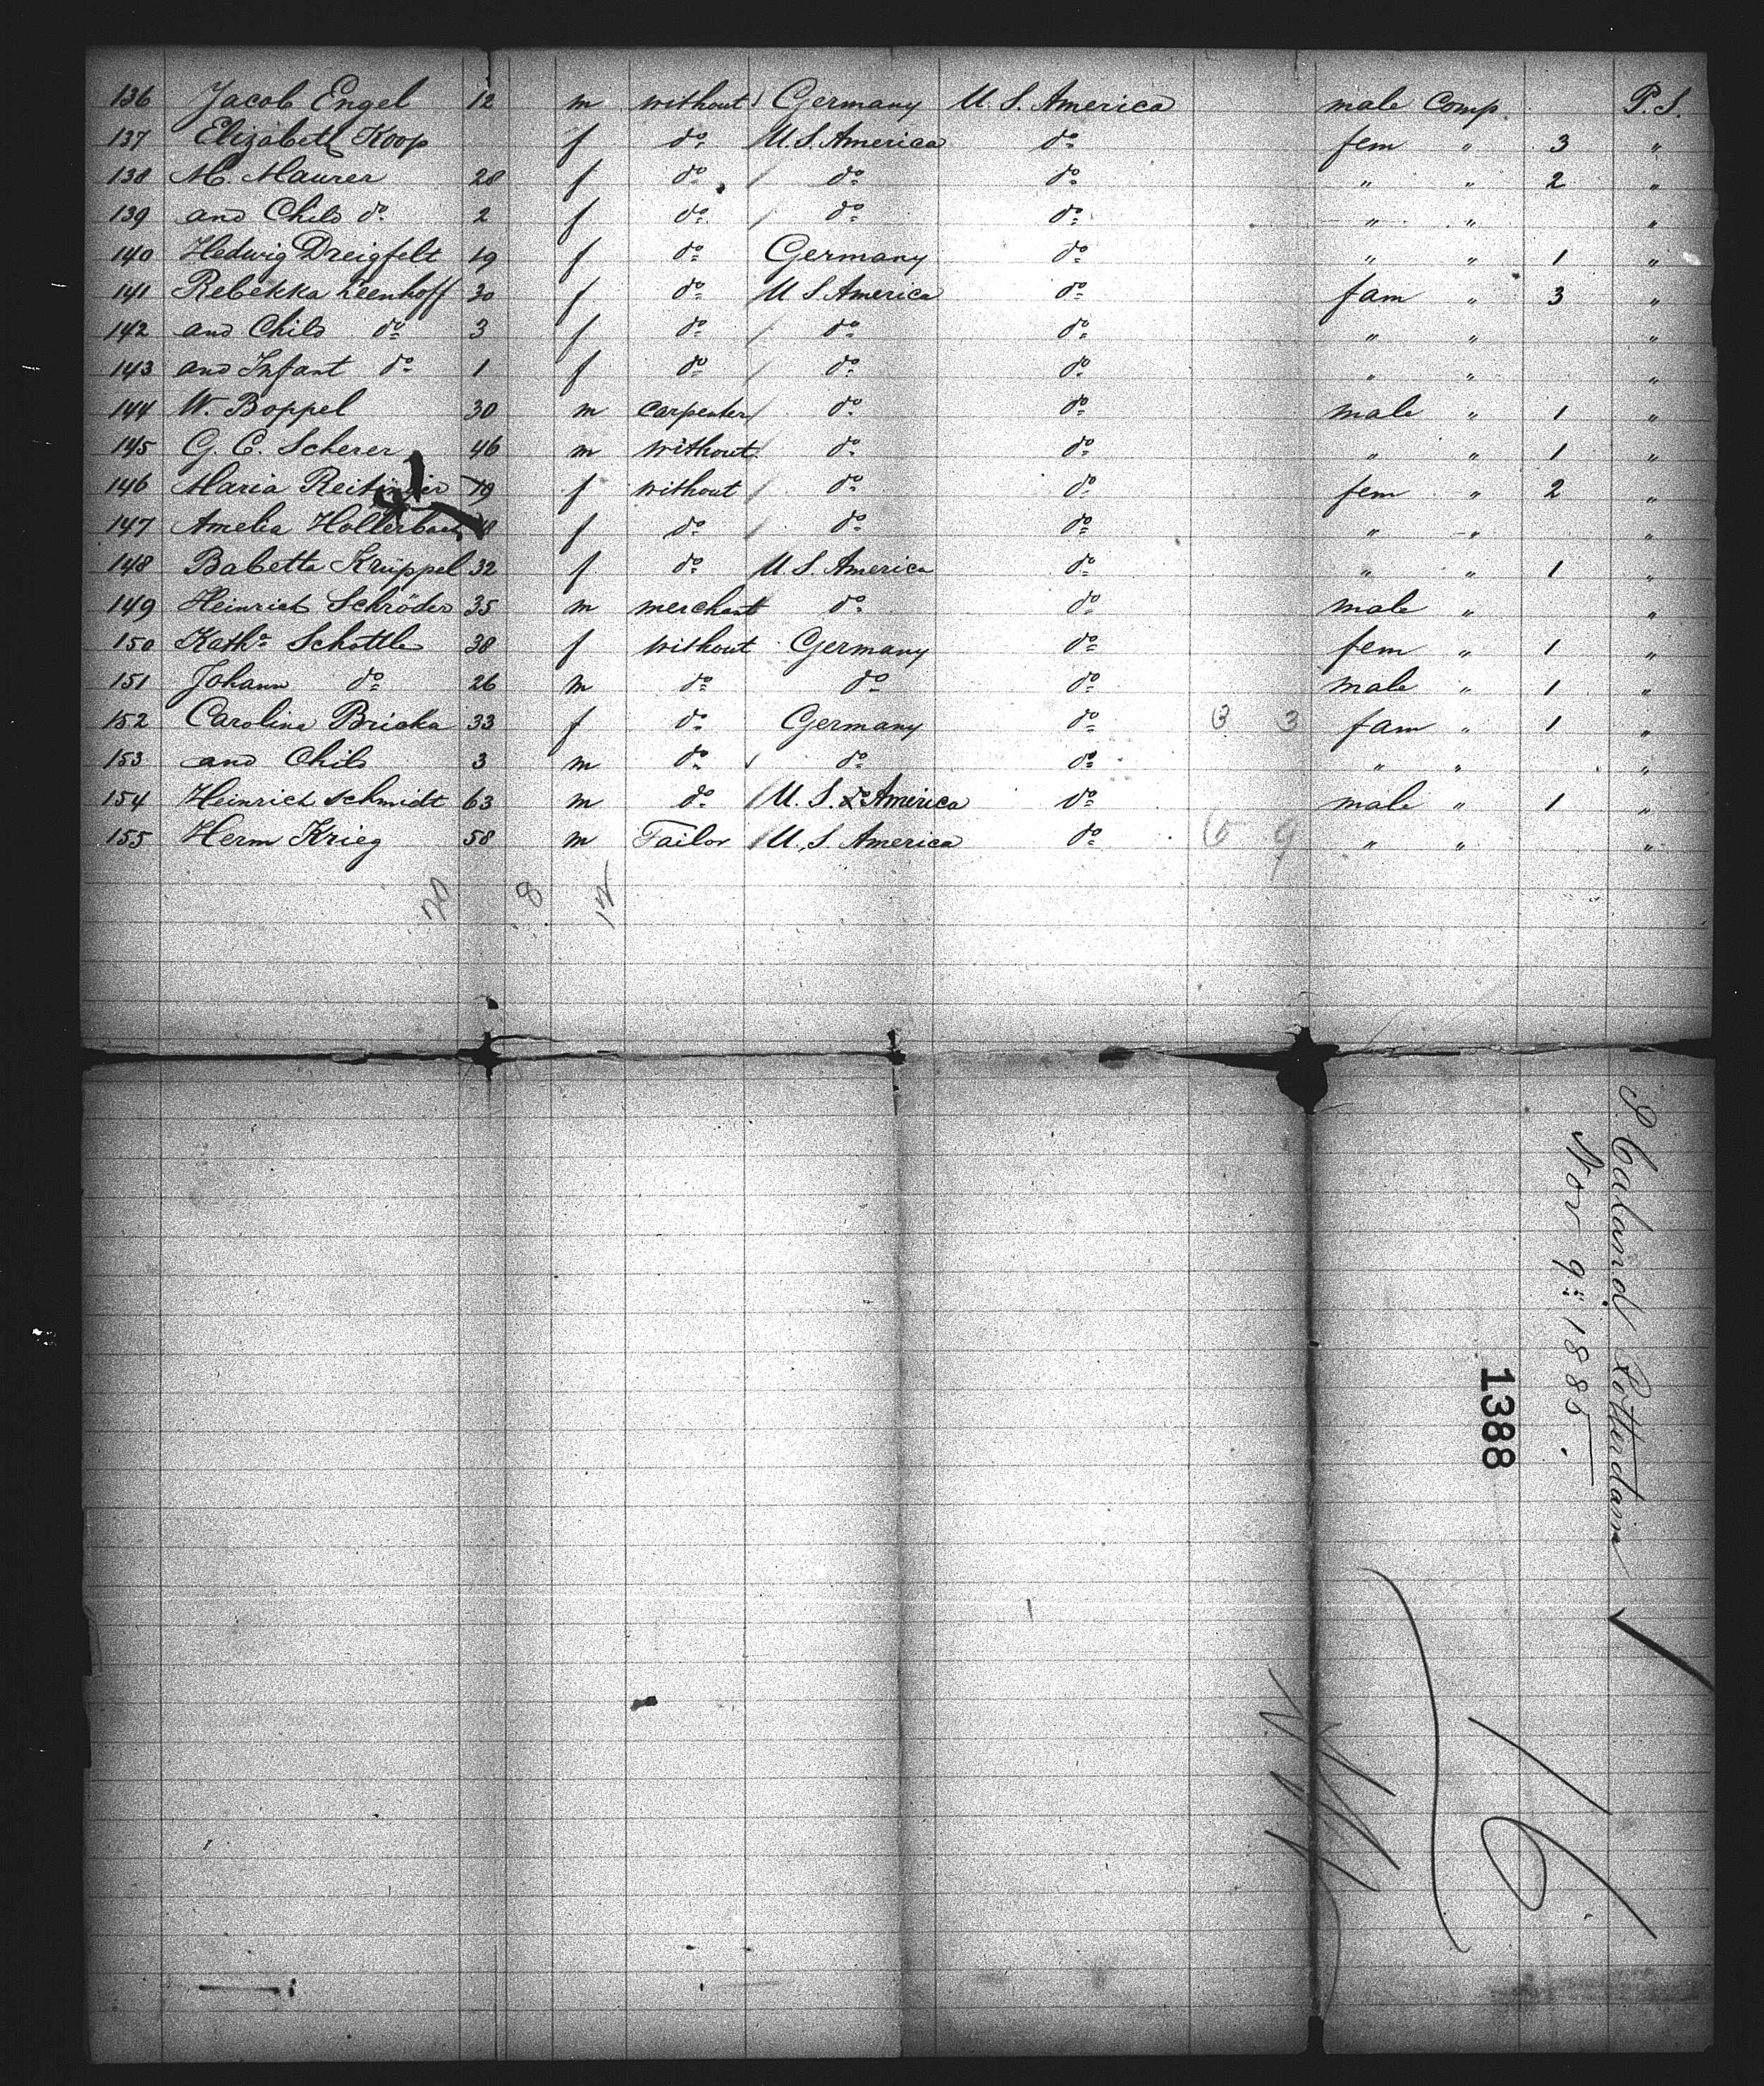 136 Jacob Engel 12 m without Germany U. S. America male Comp. P. S.
137 Elizabeth Koop f do U. S. America do fem " 3 "
138 M. Maurer 28 f do do do " " 2 "
139 and Child do 2 f do do do " " "
140 Hedwig Dreigfelt 19 f do Germany do " " 1 "
141 Rebekka Leenhoff 30 f do U S America do fam " 3 "
142 and Child do 3 f do do do " " "
143 and Infant do 1 f do do do " " "
144 W. Boppel 30 m carpenter do do male " 1 "
145 G. C. Scherer 46 m without do do " " 1 "
146 Maria 19 f without do do fem " 2 "
147 Amelia Hollerbach 18 f do do do " " "
148 Babetta Krüppel 32 f do U S. America do " " 1 "
149 Heinrich Schröder 35 m merchant do do male " "
150 Katha Schottle 38 f without Germany do fem " 1 "
151 Johann do 26 m do do do male " 1 "
152 Carolina Bricka 33 f do Germany do 3 3 fam " 1 "
153 and Child 3 m do do do " " "
154 Heinrich Schmidt 63 m do U. S. do America do male " 1 "
155 Herm Krieg 58 m Tailor U. S. America do 6 9 " " "
20 8 12
P. Caland Rotterdam
Nov 9th 1885.
1388
16